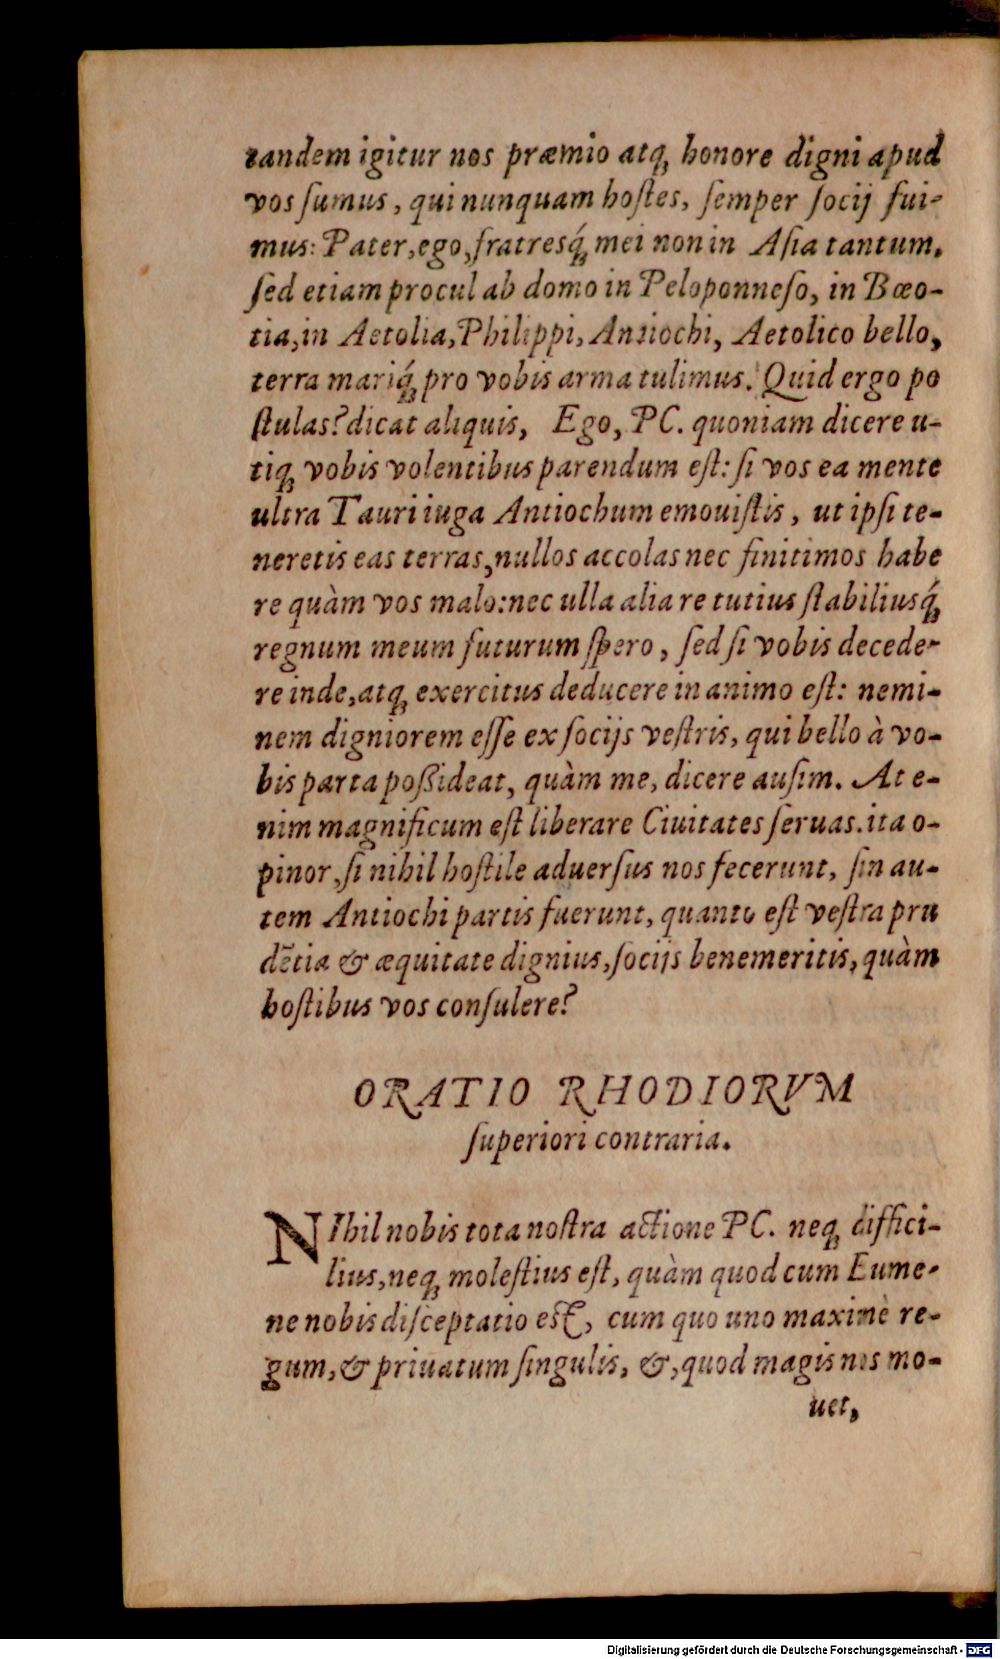 tandem igitur nos præmio atq; honore digni apud
vos ſumus, qui nunquam hoſtes, ſemper ſocij fui-
mus: Pater, ego, fratresq́; mei non in Aſia tantum.
ſed etiam procul ab domo in Peloponneſo, in Bœo-
tia, in Aetolia, Philippi, Antiochi, Aetolico bello,
terra mariq́; pro vobis arma tulimus. Quid ergo po
ſtulas? dicat aliquis, Ego, PC. quoniam dicere u-
tiq; vobis volentibus parendum eſt: ſi vos ea mente
ultra Tauri iuga Antiochum emouiſtis, ut ipſi te-
neretis eas terras, nullos accolas nec finitimos habe
re quàm vos malo: nec ulla alia re tutius ſtabiliusq́;
regnum meum futurum ſpero, ſed ſi vobis decede-
re inde, atq; exercitus deducere in animo eſt: nemi-
nem digniorem eſſe ex ſocijs veſtris, qui bello à vo-
bis parta poßideat, quàm me, dicere auſim. At e-
nim magnificum eſt liberare Ciuitates ſeruas. ita o-
pinor, ſi nihil hoſtile aduerſus nos fecerunt, ſin au-
tem Antiochi partis fuerunt, quanto eſt veſtra pru
dẽtia & æquitate dignius, ſocijs benemeritis, quàm
hoſtibus vos conſulere?
ORATIO RHODIORVM
ſuperiori contraria.
NIhil nobis tota noſtra actione PC. neq; diffici-
lius, neq; moleſtius eſt, quàm quod cum Eume-
ne nobis diſceptatio eſt, cum quo uno maximè re-
gum, & priuatum ſingulis, &, quod magis nos mo-
uet,
Digitalisierung gefördert durch die Deutsche Forschungsgemeinschaft - DFG